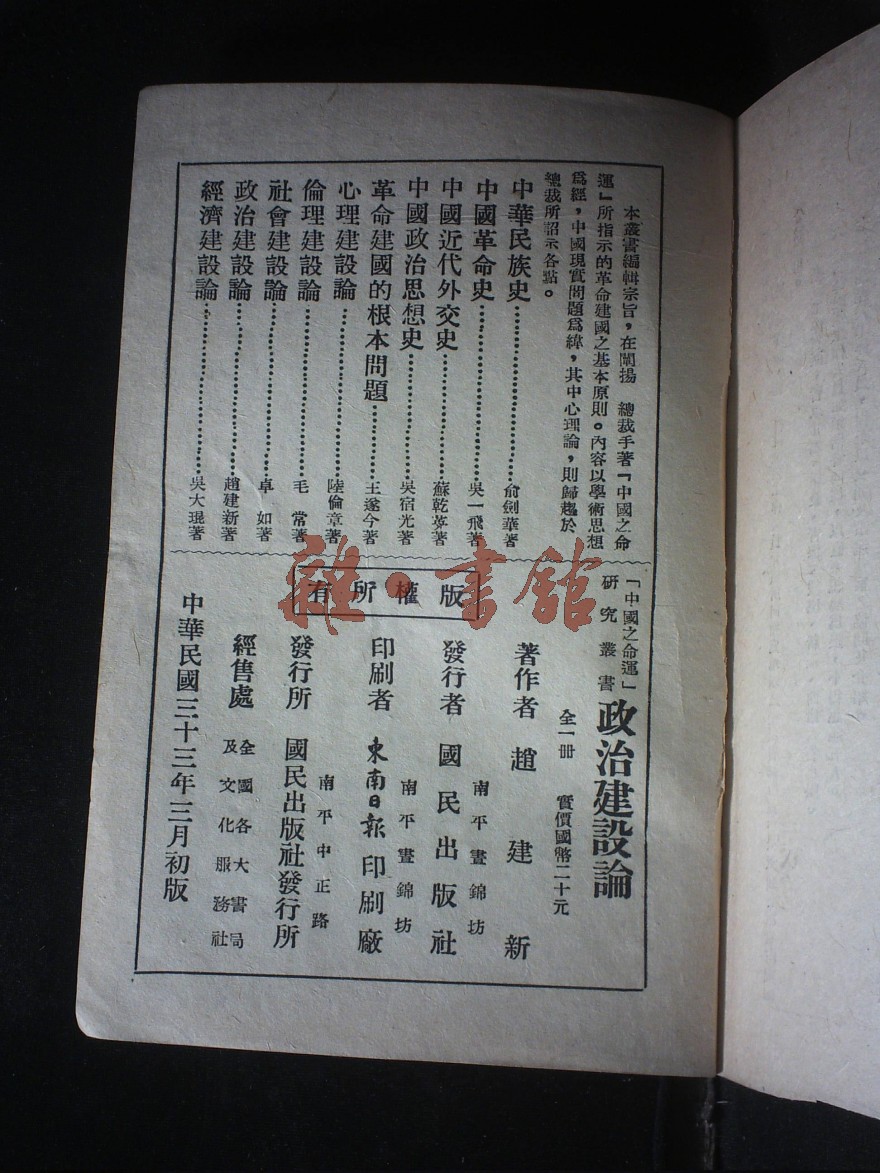 本叢書編輯宗旨，在闡揚　總裁手著「中國之命
運」所指示的革命建國之基本原則。內容以學術思想
爲經，中國現實問題爲緯，其中心理論，則歸趨於
總裁所詔示各點。
中華民族史…………俞劍華著
中國革命史…………吳一飛著
中國近代外交史…………蘇乾英著
中國政治思想史…………吳宿光著
革命建國的根本問題…………王遂今著
心理建設論…………陸倫章著
倫理建設論…………毛　常著
社會建設論…………卓　如著
政治建設論…………趙建新著
經濟建設論…………吳大琨著
「中國之命運」
研究叢書
政治建設論
全一冊　實價國幣二十元
版權所有
著作者　趙建新
南平晝錦坊
發行者　國民出版社
南平晝錦坊
印刷者　東南日報印刷廠
南平中正路
發行所　國民出版社發行所
經售處　全國各大書局
及文化服務社
中華民國三十三年三月初版
雜·書館